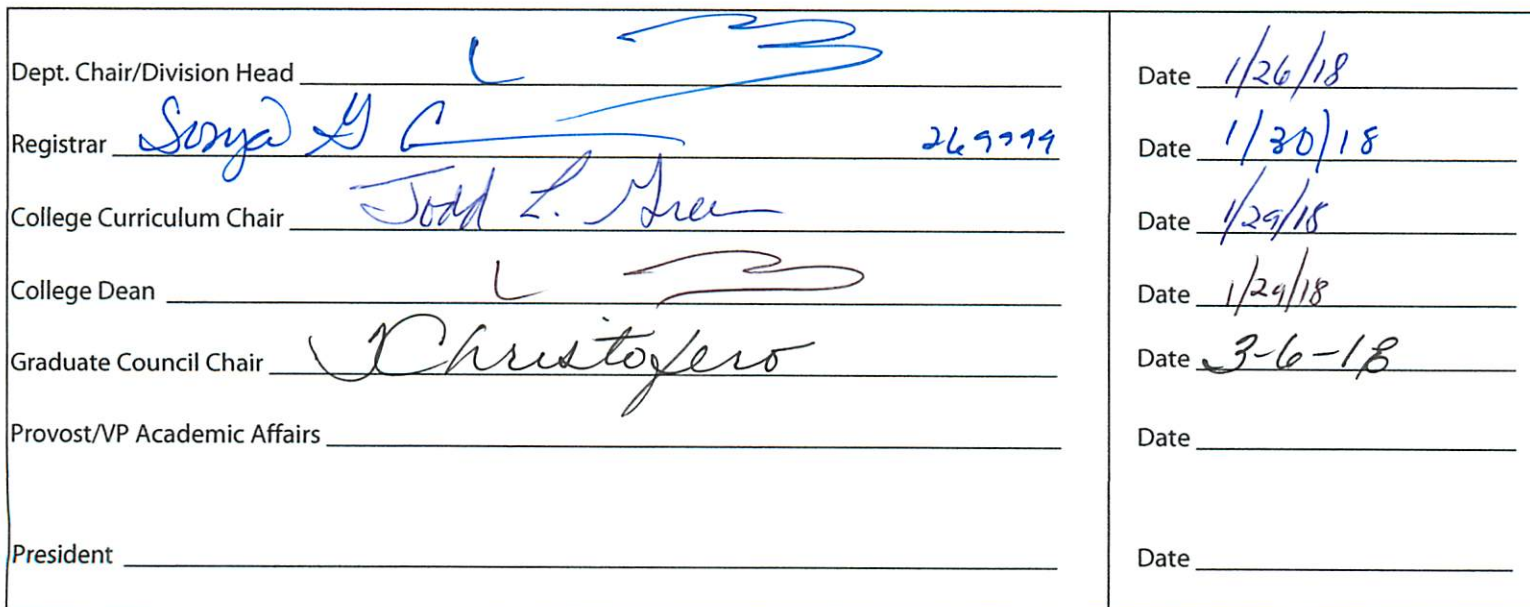 Dept. Chair/Division Head Date 1/26/18
Registrar Sonya G C 269999 Date 1/30/18
College Curriculum Chair Todd L. Green Date 1/29/18
College Dean Date 1/29/18
Graduate Council Chair JChristofero Date 3-6-18
Provost/VP Academic Affairs Date
President Date